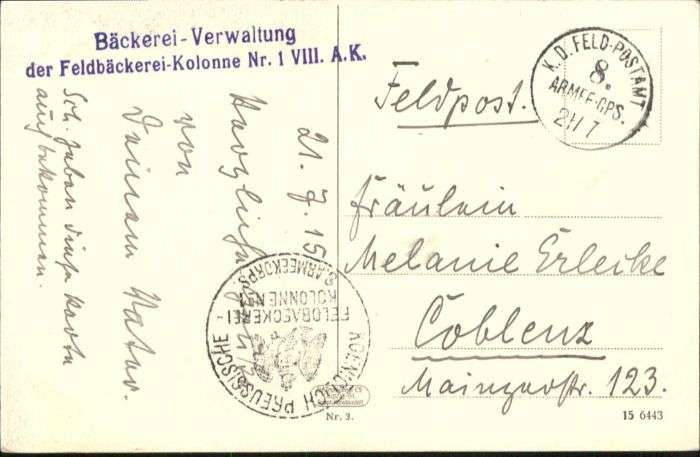 Bäckerei-Verwaltung
der Feldbäckerei-Kolonne Nr. 1 VIII. A.K.
K. D. FELD-POSTAMT
8.
ARMEE-CPS.
21/7
Feldpost.
Fräulein
Melanie Erlecke
Coblenz
Mainzerstr. 123.
21. 7. 15
Herzliche
von
Deinem Vater.
Wir haben diese Karte
auch bekommen.
KOENIGLICH PREUSSISCHE
FELDBAECKEREI-
KOLONNE No 1
8. ARMEEKORPS
Nr. 3.
15 6443